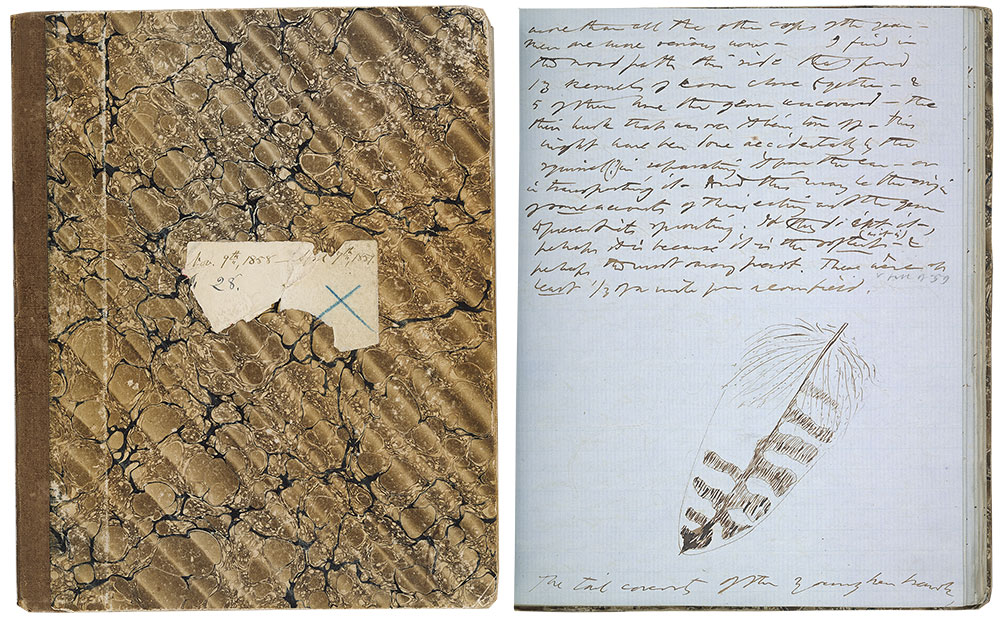 Nov. 9th, 1858 – April 7th, 1859
28.
more than all the other crops of the year –
Men are more now – I find in
the wood path this side that pond
13 kernels of corn close together – &
5 of them have the germ uncovered – the
thin husk that was over them torn off – this
might have been done accidentally by the
squirrel (?) in separating it from the ear – or
in transporting it. And this may be the origin
some accounts of their eating out the germ
to prevent its sprouting. If they do eat it out,
perhaps it is because it is the softest (as it is) &
perhaps the most savory part. These were at
least 1/3 of a mile from a cornfield.
The tail coverts of the young hen hawk,